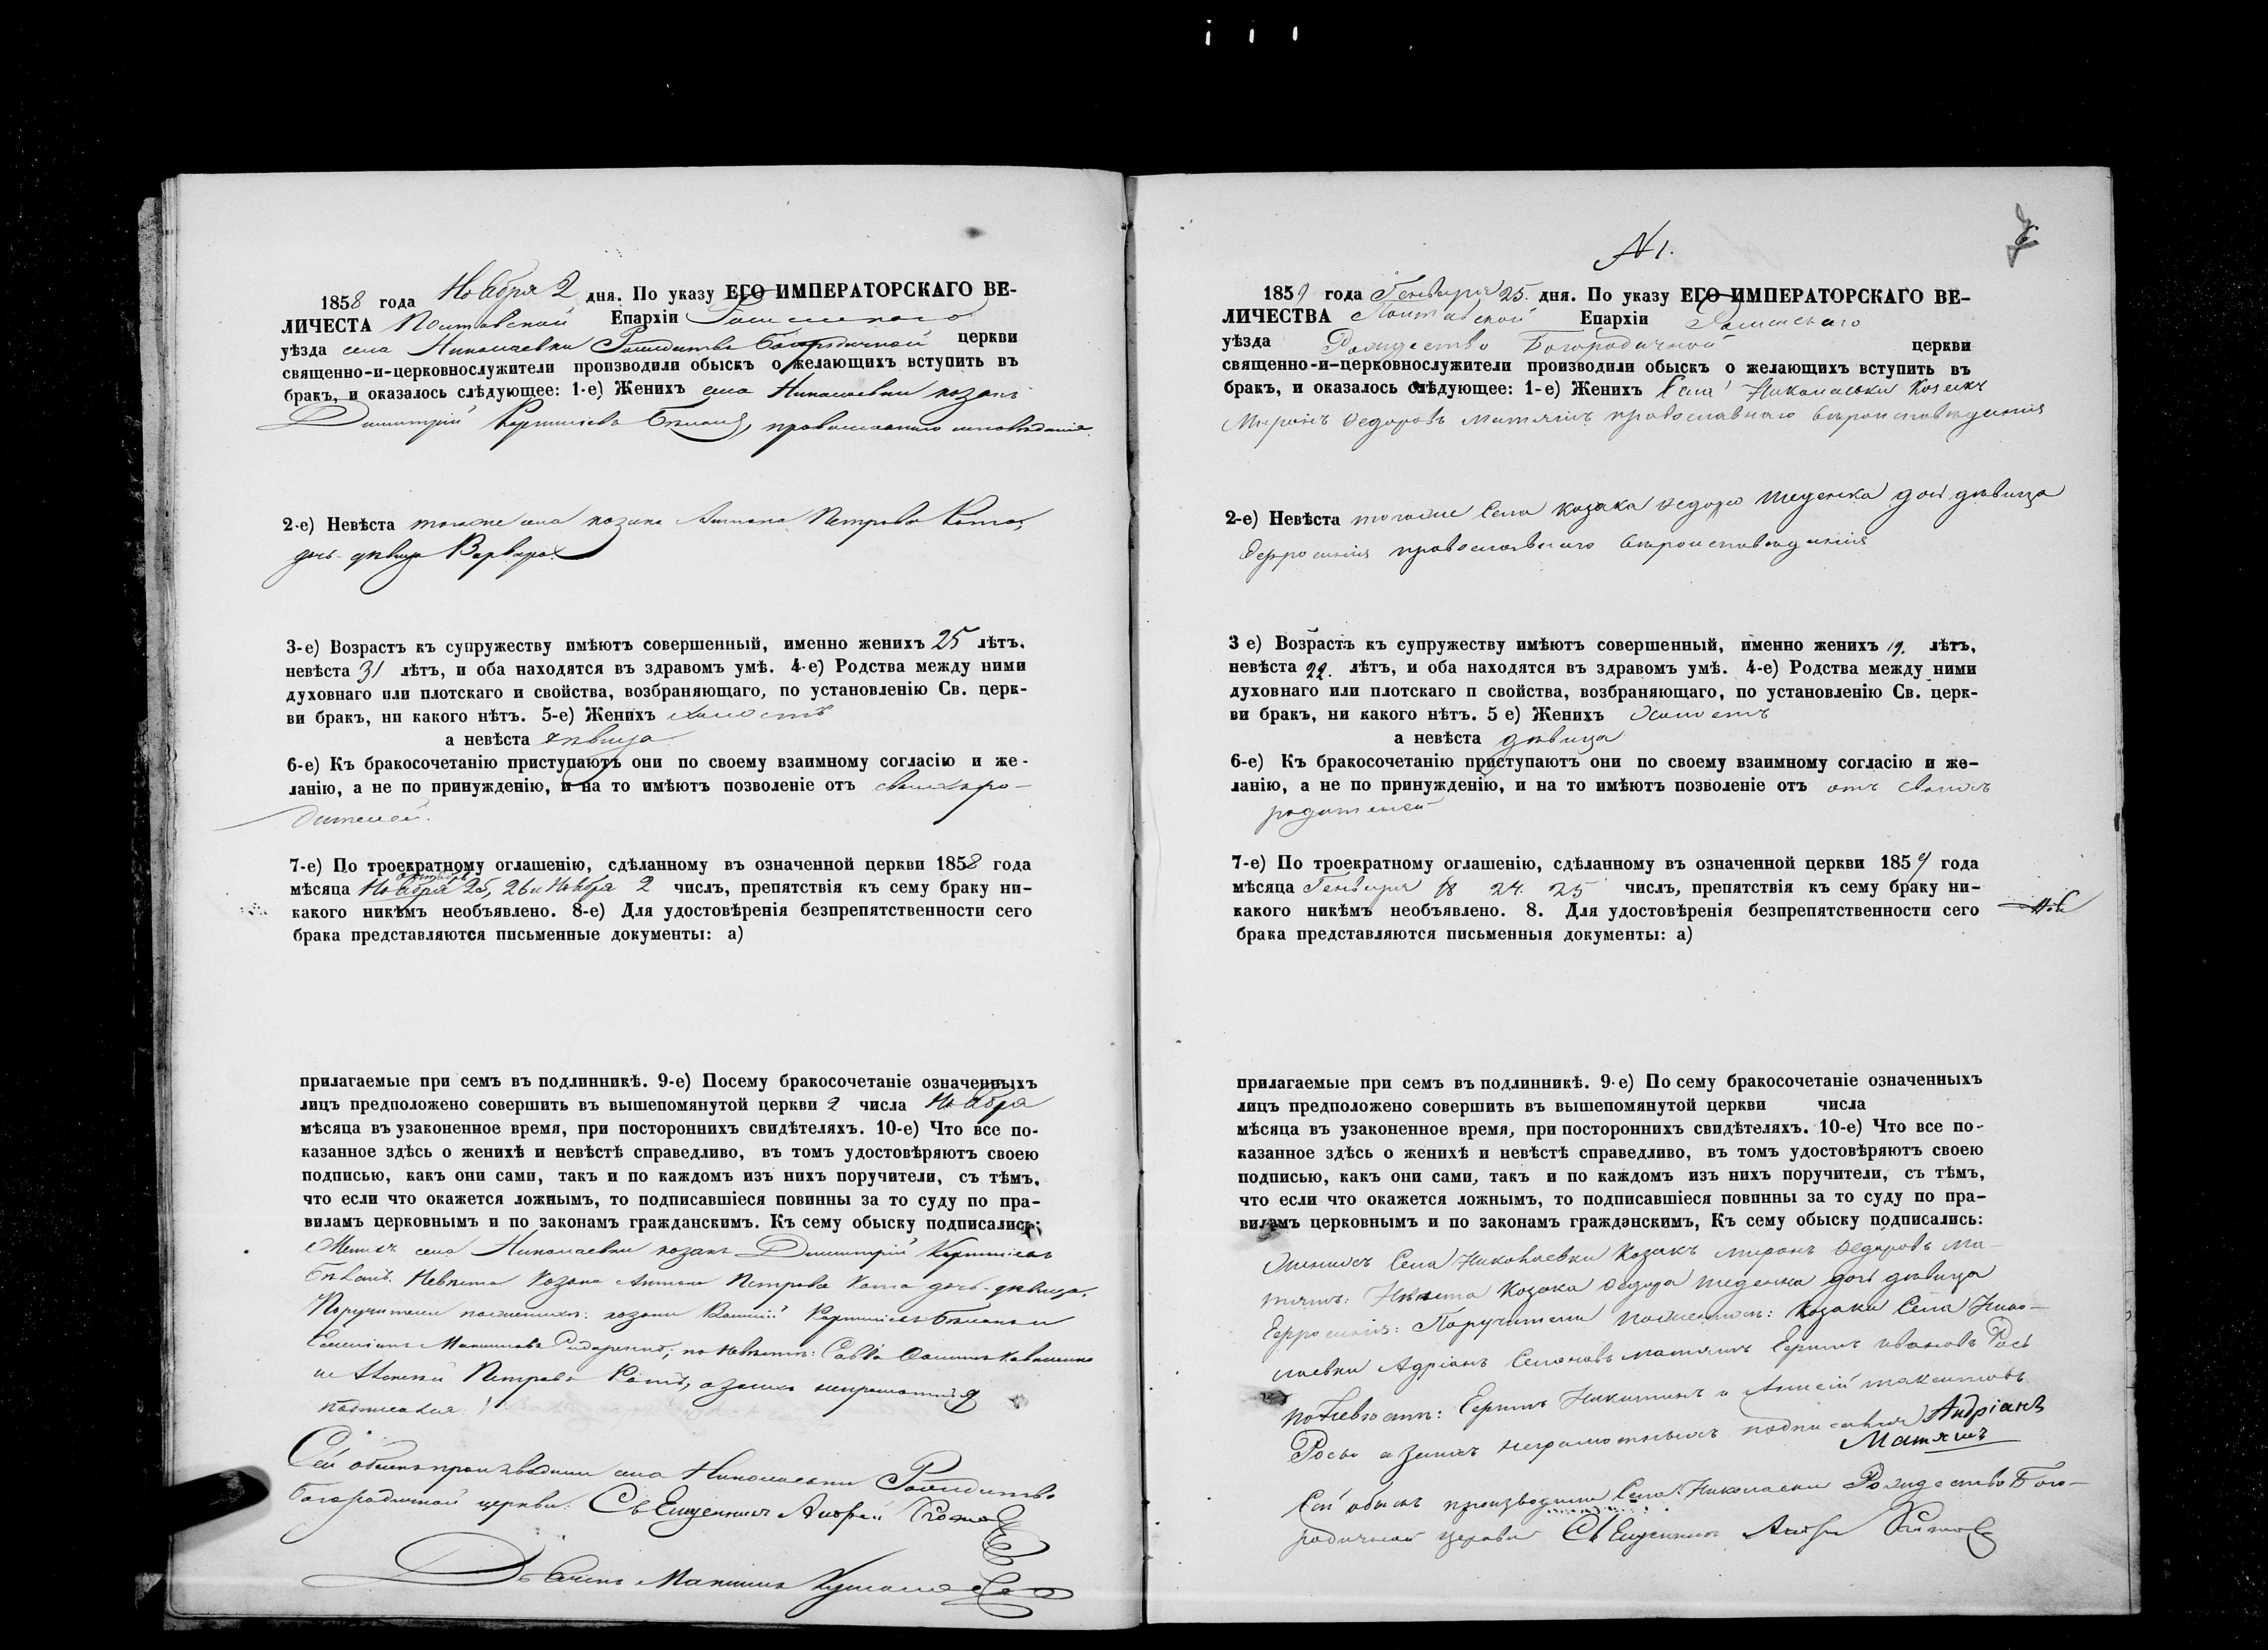 1858 года Ноября 2 дня. По указу ЕГО ИМПЕРАТОРСКАГО ВЕ-
ЛИЧЕСТА Полтавской Епархіи Роменскаго
уѣзда села Николаевки Рождество Богородичной церкви
священно-и-церковнослужители производили обыскъ о желающихъ вступить въ
бракъ, и оказалось слѣдующее: 1-е) Женихъ села Николаевки козакъ
Димитрій православнаго исповѣданія
2-е) Невѣста тогоже села козака Антона Петрова Кота
дочь дѣвица Варвара
3-е) Возрастъ къ супружеству имѣютъ совершенный, именно женихъ 25 лѣтъ.
невѣста 31 лѣтъ, и оба находятся въ здравомъ умѣ. 4-е) Родства между ними
духовнаго или плотскаго и свойства, возбраняющаго, по установленію Св. церк-
ви бракъ, ни какого нѣтъ. 5-е) Женихъ холостъ
а невѣста дѣвица
6-е) Къ бракосочетанію приступаютъ они по своему взаимному согласію и же-
ланію, а не по принужденію, и на то имѣютъ позволеніе отъ своихъ ро-
дителей.
7-е) По троекратному оглашенію, сдѣланному въ означенной церкви 1858 года
октября
мѣсяца Ноября 25, 26 и Ноября 2 числъ, препятствія къ сему браку ни-
какого никѣмъ необъявлено. 8-е) Для удостовѣренія безпрепятственности сего
брака представляются письменные документы: а)
прилагаемые при семъ въ подлинникѣ. 9-е) Посему бракосочетаніе означенныхъ
лицъ предположено совершить въ вышепомянутой церкви 2 числа Ноября
мѣсяца въ узаконенное время, при постороннихъ свидѣтеляхъ. 10-е) Что все по-
казанное здѣсь о женихѣ и невѣстѣ справедливо, въ томъ удостовѣряютъ своею
подписью, какъ они сами, такъ и по каждомъ изъ нихъ поручители, съ тѣмъ,
что если что окажется ложнымъ, то подписавшіеся повинны за то суду по пра-
виламъ церковнымъ и по законамъ гражданскимъ. Къ сему обыску подписались:
Женихъ села Николаевки козакъ Димитрій
Невѣста козака Антона Петрова Кота дочь дѣвица.
Поручители по женихѣ: козаки
по невѣстѣ: Савва
и Алексѣй Петровъ Котъ, а за нихъ неграмотныхъ
подписался
Сей обыскъ производили села Николаевки Рождество
Богородичной церкви: Священникъ Андрей
Дьячекъ Максимъ
N 1.
1859 года Генваря 25. дня. По указу ЕГО ИМПЕРАТОРСКАГО ВЕ-
ЛИЧЕСТВА Полтавской Епархіи Роменскаго
уѣзда Рождество Богородичной церкви
священно-и-церковнослужители производили обыскъ о желающихъ вступить въ
бракъ, и оказалось слѣдующее: 1-е) Женихъ Села Николаевки Козакъ
Миронъ Федоровъ Матяшъ православнаго вѣроисповѣданія
2-е) Невѣста тогоже Села козака Федора Теденка дочь дѣвица
православнаго вѣроисповѣданія
3 е) Возрастъ къ супружеству имѣютъ совершенный, именно женихъ 19. лѣтъ,
невѣста 22. лѣтъ, и оба находятся въ здравомъ умѣ. 4-е) Родства между ними
духовнаго или плотскаго п свойства, возбраняющаго, по установленію Св. церк-
ви бракъ, ни какого нѣтъ. 5 е) Женихъ Холостъ
а невѣста дѣвица
6-е) Къ бракосочетанію приступаютъ они по своему взаимному согласію и же-
ланію, а не по принужденію, и на то имѣютъ позволеніе отъ отъ своихъ
родителей
7-е) По троекратному оглашенію, сдѣланному въ означенной церкви 1859 года
мѣсяца Генваря 18 24. 25 числъ, препятствія къ сему браку ни-
какого никѣмъ необъявлено. 8. Для удостовѣренія безпрепятственности сего
брака представляются письменныя документы: а)
прилагаемые при семъ въ подлинникѣ. 9-е) По сему бракосочетаніе означенныхъ
лицъ предположено совершить въ вышепомянутой церкви числа
мѣсяца въ узаконенное время, при постороннихъ свидѣтеляхъ. 10-е) Что все по-
казанное здѣсь о женихѣ и невѣстѣ справедливо, въ томъ удостовѣряютъ своею
подписью, какъ они сами, такъ и по каждомъ изъ нихъ поручители, съ тѣмъ,
что если что окажется ложнымъ, то подписавшіеся повинны за то суду по пра-
виламъ церковнымъ и по законамъ гражданскимъ, Къ сему обыску подписались:
Женихъ Села Николаевки Козакъ Миронъ Федоровъ Ма-
тяшъ: Невѣста Козака Федора Теденка дочь дѣвица
Поручители по женихѣ: Козаки Села Нико-
лаевки Адріанъ Семоновъ Матяшъ Ефимъ Ивановъ Рось
по Невѣстѣ: Ефимъ Никитинъ и Алексѣй Максимовъ
Росы а за нихъ неграмотныхъ подписался Андріанъ
Матяшъ
Сей обыскъ производили Села Николаевки Рождество Бого-
родичной церкви Священникъ Андрей